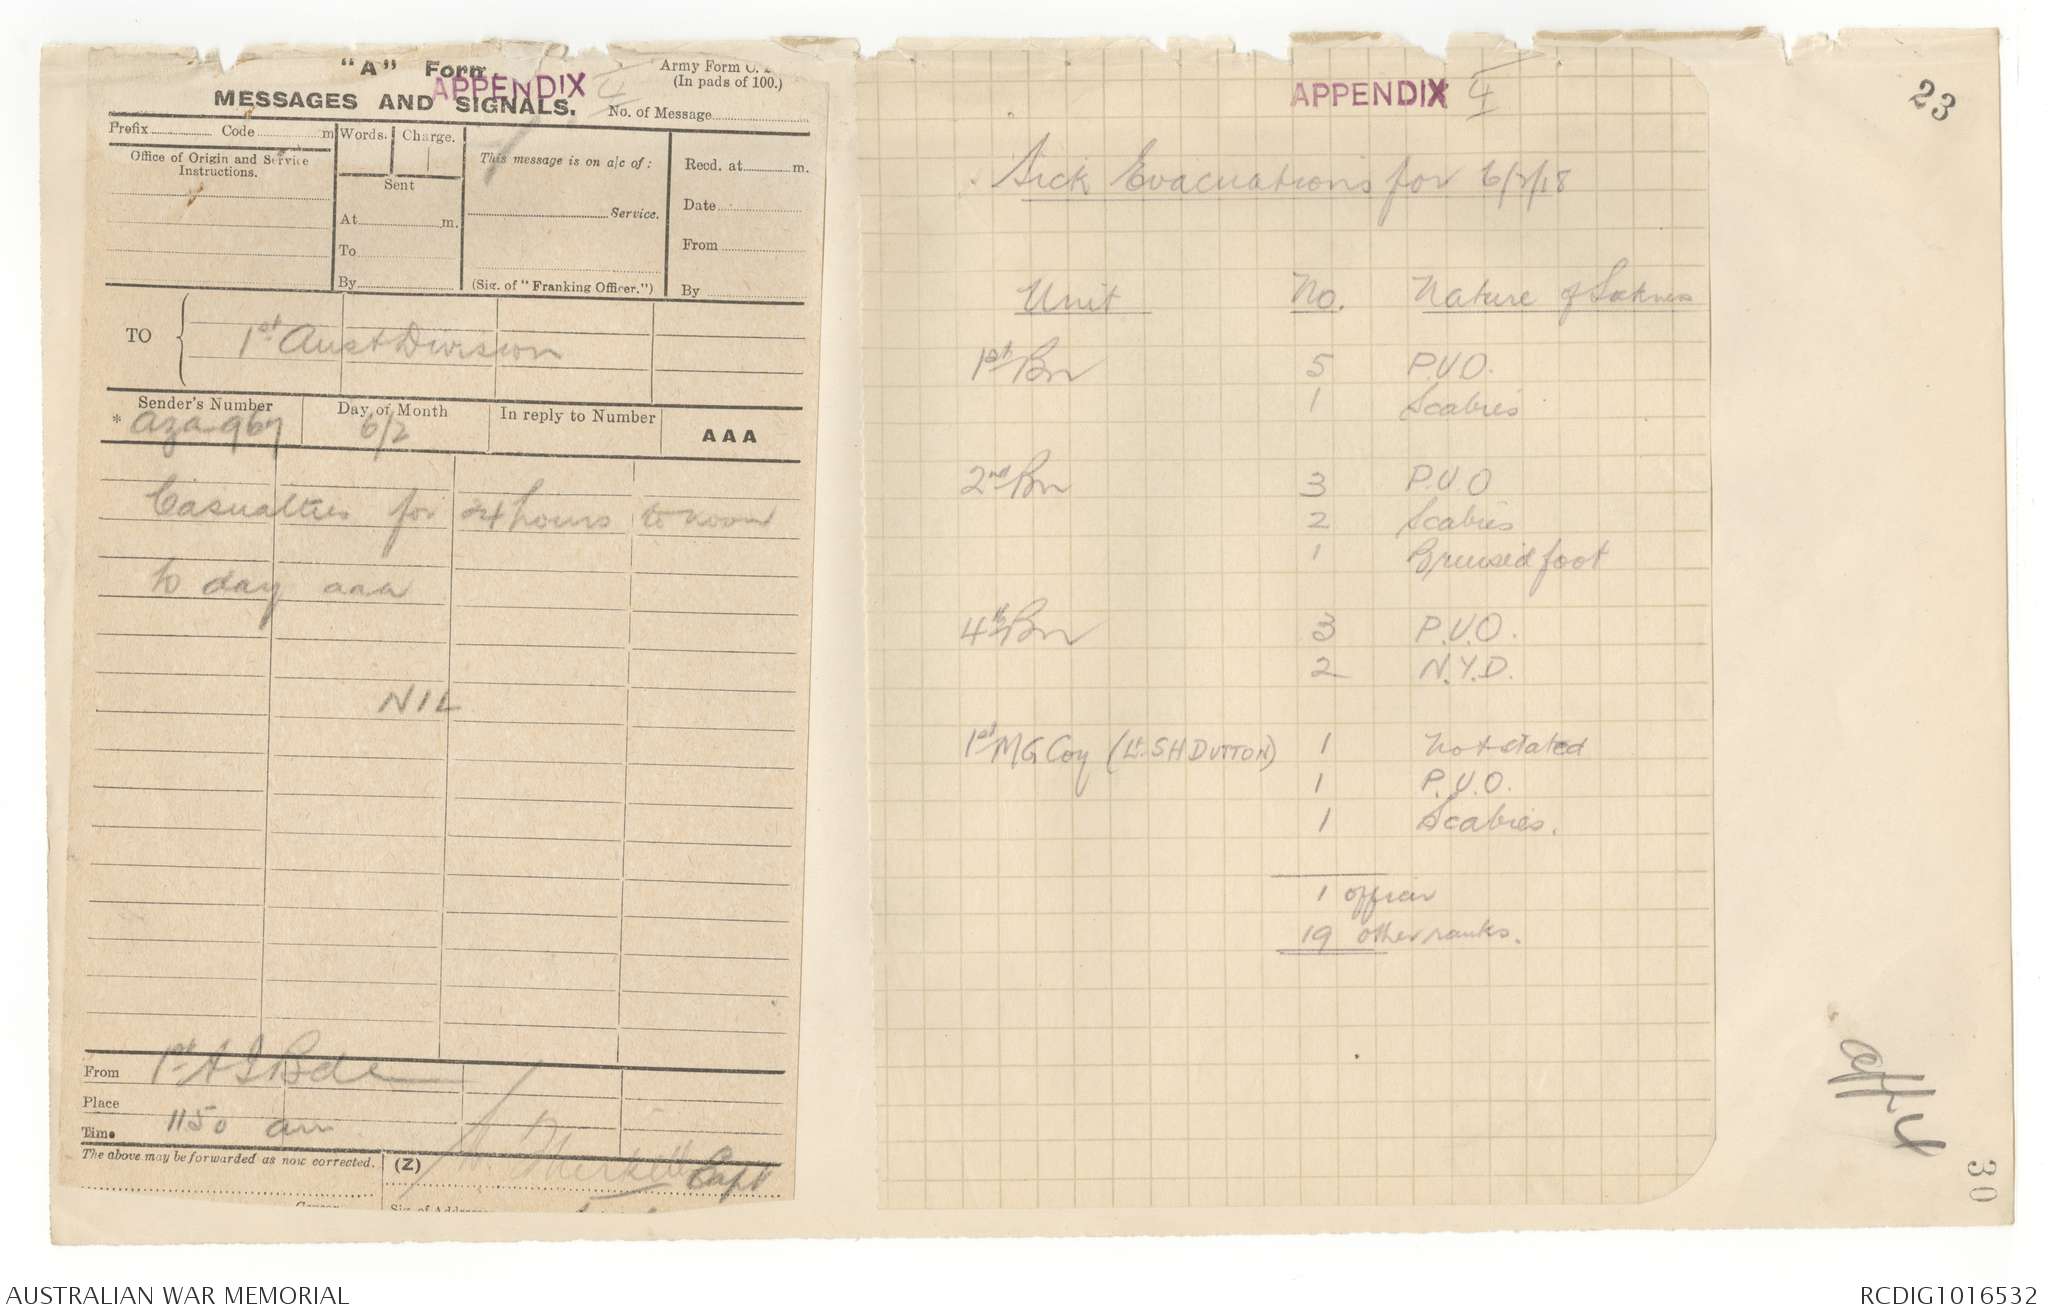 "A" Form
Army Form C.
(In pads of 100.)
APPENDIX 4
MESSAGES AND SIGNALS.
No. of Message
Prefix Code m
Words. Charge.
Office of Origin and Service
Instructions.
Sent
At m.
To
By
This message is on a/c of:
Service.
(Sig. of "Franking Officer.")
Recd. at m.
Date
From
By
TO
1st Aust Division
Sender's Number
Day of Month
In reply to Number
AAA
* aza 967
6/2
Casualties for 24 hours to noon
to day aaa
NIL
From 1st A I Bde
Place
Time 1150 am
The above may be forwarded as now corrected.
(Z)
Capt
Censor
Sig. of Address
APPENDIX 4
23
Sick Evacuations for 6/2/18
Unit No. Nature of Sickness
1st Bn 5 P.U.O.
1 Scabies
2nd Bn 3 P.U.O
2 Scabies
1 Bruised foot
4th Bn 3 P.U.O.
2 N.Y.D.
1st MG Coy (Lt. S H DUTTON) 1 not stated
1 P.U.O.
1 Scabies.
1 officer
19 other ranks.
App 4
30
AUSTRALIAN WAR MEMORIAL
RCDIG1016532